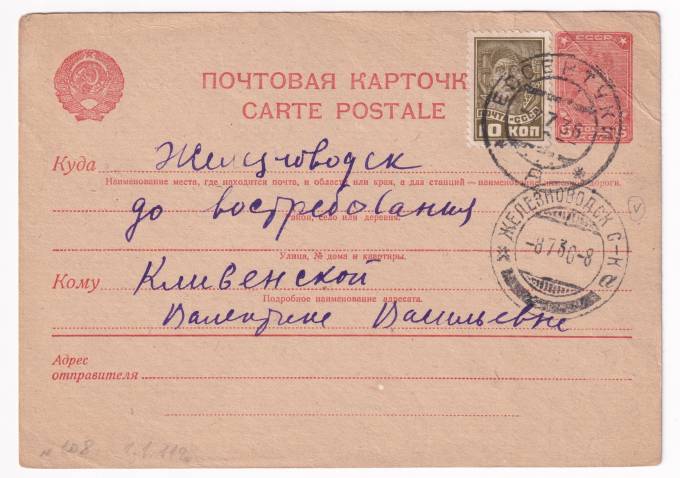 СССР
ПОЧТОВАЯ КАРТОЧК
CARTE POSTALE
ПОЧТА СССР
10 КОП
ЕССЕНТУКИ
Куда Железноводск
Наименование места, где находится почта, и области или края, а для станций—наименование дороги.
до востребования
Район, село или деревня.
ЖЕЛЕЗНОВОДСК С-К
-8 7 36-8
Улица, № дома и квартиры.
Кому Кливенской
Подробное наименование адресата.
Валентине Васильевне
Адрес
отправителя
№108 1.1.112